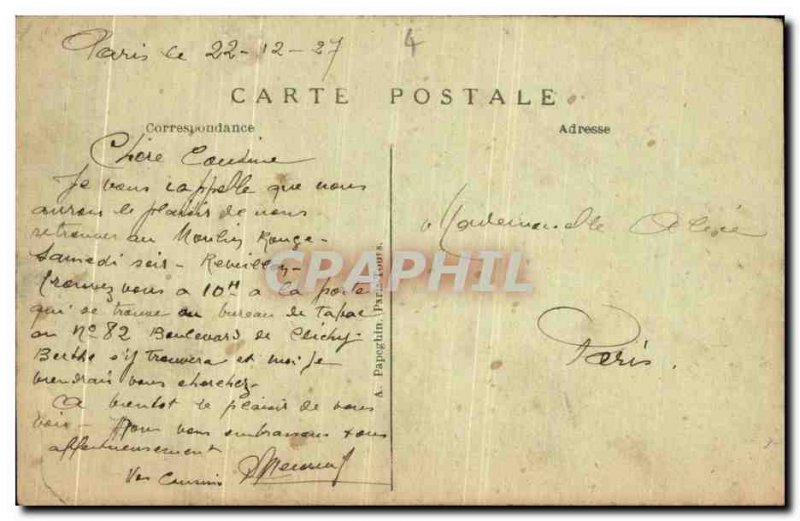 Paris le 22-12-27
4
CARTE POSTALE
Correspondance
Adresse
Chère Cousine
Je vous rappelle que nous
aurons le plaisir de nous
retrouver au Moulin Rouge-
Samedi soir - Reveillon-
Trouvez vous a 10H a la porte
qui se trouve au bureau de Tabac
au N° 82 Boulevard de Clichy-
Berthe s'y trouvera et moi je
viendrais vous chercher-
A bientot le plaisir de vous
voir - Nous vous embrassons tous
affectueusement
Vos Cousins
Mademoiselle
Paris.
A. Papeghin, Paris-Tours.
CPAPHIL